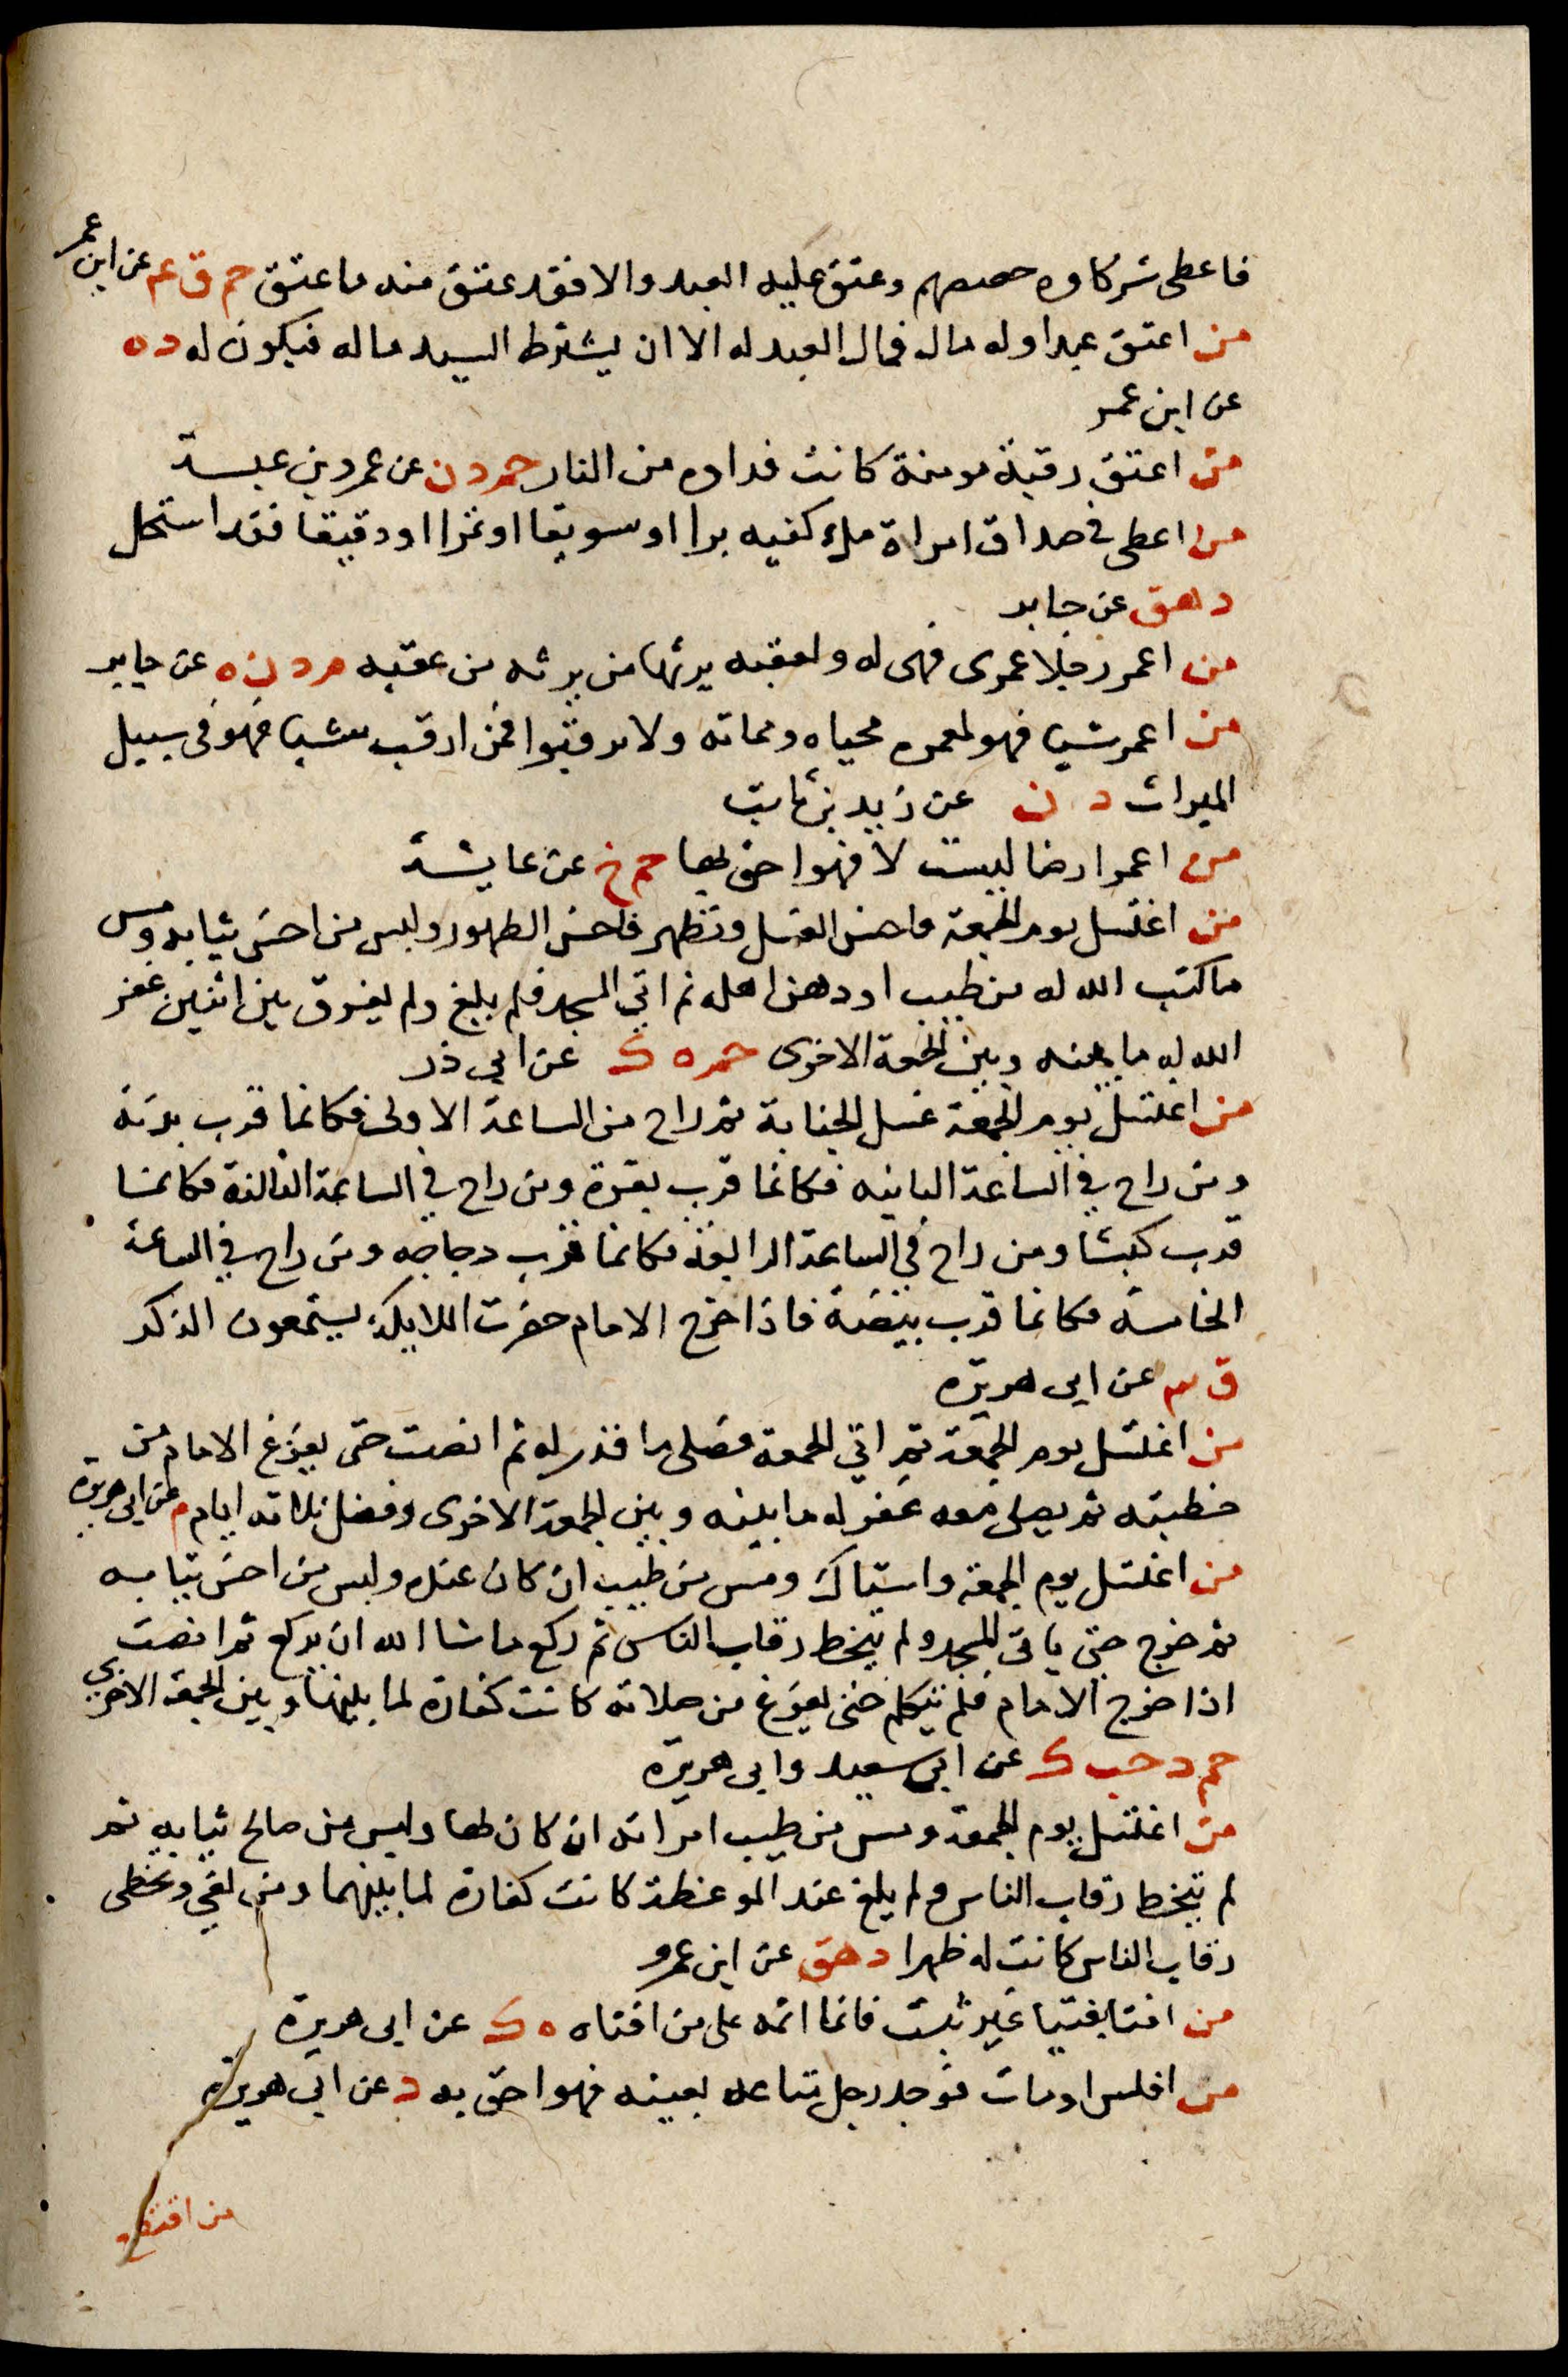 فاعطى شركاوه حصصهم وعتق عليه العبد والا فقد عتق منه ما عتق حم ق عم عن ابن عمر
من اعتق عبدا وله مال فمال العبد له الا ان يشترط السيد ماله فيكون له د ه
عن ابن عمر
من اعتق رقبة مومنة كانت فداوه من النار حم د ن عن عمرو بن عبسة
من اعطى في صداق امراة ملء كفيه برا او سويقا او تمرا او دقيقا فقد استحل
د هق عن جابر
من اعمر رجلا عمرى فهى له ولعقبه يرثها من يرثه من عقبه م د ن ه عن جابر
من اعمر شيا فهو لمعمره محياه ومماته ولا ترقبوا فمن ارقب شيا فهو في سبيل
الميراث د ن عن زيد بن ثابت
من اعمر ارضا ليست لا فهو احق بها حم خ عن عايشة
من اغتسل يوم الجمعة فاحسن الغسل وتطهر فاحسن الطهور ولبس من احسن ثيابه ومس
ما كتب الله له من طيب او دهن اهله ثم اتي المسجد فلم يلغ ولم يفرق بين اثنين غفر
الله له ما بينه وبين الجمعة الاخرى حم ه ك عن ابي ذر
من اغتسل يوم الجمعة غسل الجنابة ثم راح من الساعة الاولى فكانما قرب بدنة
ومن راح في الساعة الثانيه فكانما قرب بقرة ومن راح في الساعة الثالثة فكانما
قرب كبشا ومن راح في الساعة الرابعة فكانما قرب دجاجه ومن راح في الساعة
الخامسة فكانما قرب بيضة فاذا خرج الامام حضرت الملايكة يستمعون الذكر
ق ٣ عن ابى هريرة
من اغتسل يوم الجمعة ثم اتي الجمعة فصلى ما قدر له ثم انصت حتى يفرغ الامام من
خطبته ثم يصلى معه غفر له ما بينه وبين الجمعة الاخرى وفضل ثلاثه ايام م عن ابى هريرة
من اغتسل يوم الجمعة واستاك ومس من طيب ان كان عنده ولبس من احسن ثيابه
ثم خرج حتى ياتى المسجد ولم يتخط رقاب الناس ثم ركع ما شا الله ان يركع ثم انصت
اذا خرج الامام فلم يتكلم حتى يفرغ من صلاته كانت كفارة لما بينها وبين الجمعة الاخرى
حم د حب ك عن ابى سعيد وابى هريرة
من اغتسل يوم الجمعة ومس من طيب امراته ان كان لها ولبس من صالح ثيابه ثم
لم يتخط رقاب الناس ولم يلغ عند الموعظة كانت كفارة لما بينهما ومن لغي وتخطى
رقاب الناس كانت له ظهرا د هق عن ابن عمرو
من افتا بفتيا غير ثبت فانما اثمه على من افتاه ه ك عن ابى هريرة
من افلس او مات فوجد رجل متاعه بعينه فهو احق به د عن ابى هريرة
من اقتطع